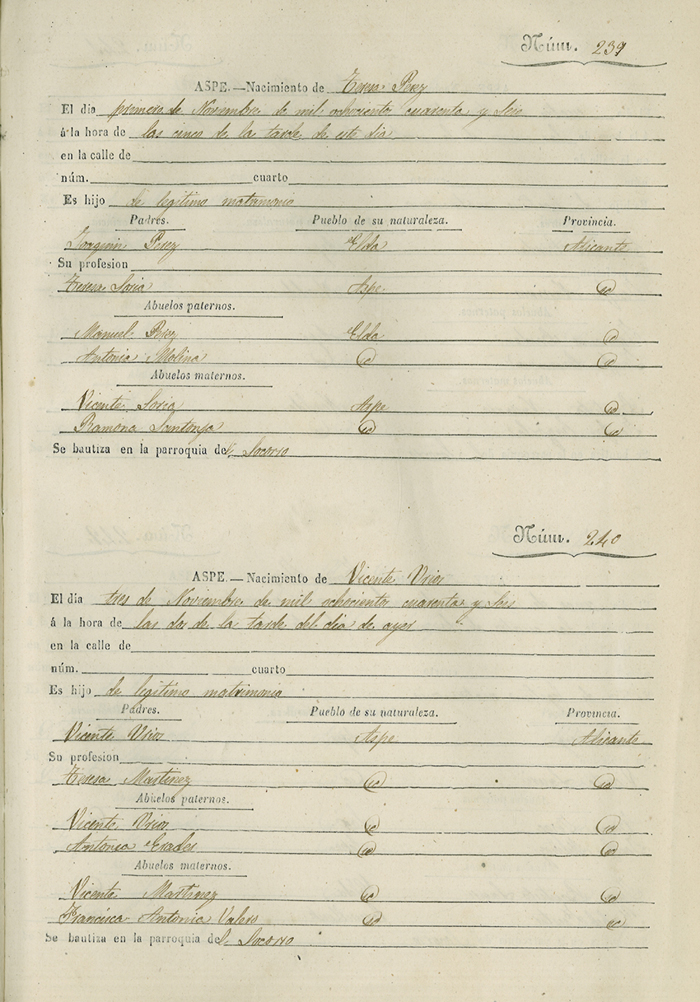 Núm. 239
ASPE.—Nacimiento de Teresa Perez
El día primero de Noviembre de mil ochociento cuarenta y seis
á la hora de las cinco de la tarde de este dia
en la calle de
núm. cuarto
Es hijo de legitimo matrimonio
Padres. Pueblo de su naturaleza. Provincia.
Joaquin Perez Elda Alicante
Su profesion
Teresa Soria Aspe id
Abuelos paternos.
Manuel Perez Elda id
Antonia Molina id id
Abuelos maternos.
Vicente Soria Aspe id
Ramona Santonja id id
Se bautiza en la parroquia del Socorro
Núm. 240
ASPE.—Nacimiento de Vicente Urios
El día tres de Noviembre de mil ochociento cuarenta y seis
á la hora de las dos de la tarde del dia de ayer
en la calle de
núm. cuarto
Es hijo de legitimo matrimonio
Padres. Pueblo de su naturaleza. Provincia.
Vicente Urios Aspe Alicante
Su profesion
Teresa Martinez id id
Abuelos paternos.
Vicente Urios id id
Antonia Erades id id
Abuelos maternos.
Vicente Martinez id id
Francisca Antonia id id
Se bautiza en la parroquia del Socorro